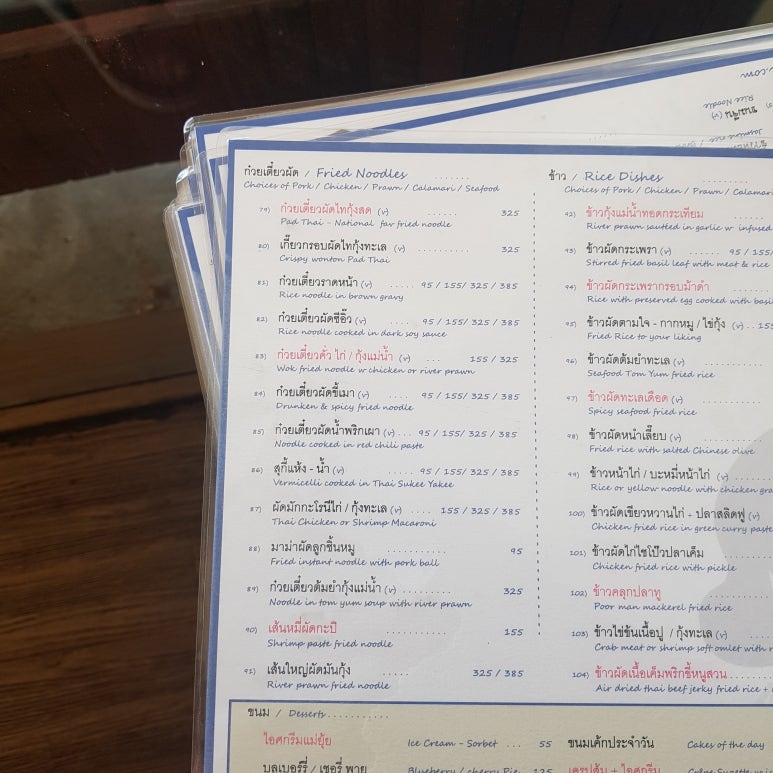 ก๋วยเตี๋ยวผัด / Fried Noodles .......
Choices of Pork / Chicken / Prawn / Calamari / Seafood
79) ก๋วยเตี๋ยวผัดไทกุ้งสด (v) ...... 325
Pad Thai - National fav fried noodle
80) เกี๊ยวกรอบผัดไทกุ้งทะเล (v) ........ 325
Crispy wonton Pad Thai
81) ก๋วยเตี๋ยวราดหน้า (v) ..... 95 / 155/ 325 / 385
Rice noodle in brown gravy
82) ก๋วยเตี๋ยวผัดซีอิ๊ว (v) .... 95 / 155/ 325 / 385
Rice noodle cooked in dark soy sauce
83) ก๋วยเตี๋ยวคั่ว ไก่ / กุ้งแม่น้ำ (v) .... 155 / 325
Wok fried noodle w chicken or river prawn
84) ก๋วยเตี๋ยวผัดขี้เมา (v) .... 95 / 155/ 325 / 385
Drunken & spicy fried noodle
85) ก๋วยเตี๋ยวผัดน้ำพริกเผา (v) ... 95 / 155/ 325 / 385
Noodle cooked in red chili paste
86) สุกี้แห้ง - น้ำ (v) ..... 95 / 155/ 325 / 385
Vermicelli cooked in Thai Sukee Yakee
87) ผัดมักกะโรนีไก่ / กุ้งทะเล (v) .... 155 / 325 / 385
Thai Chicken or Shrimp Macaroni
88) มาม่าผัดลูกชิ้นหมู ............ 95
Fried instant noodle with pork ball
89) ก๋วยเตี๋ยวต้มยำกุ้งแม่น้ำ (v) ......... 325
Noodle in tom yum soup with river prawn
90) เส้นหมี่ผัดกะปิ ............... 155
Shrimp paste fried noodle
91) เส้นใหญ่ผัดมันกุ้ง ......... 325 / 385
River prawn fried noodle
ข้าว / Rice Dishes .........
Choices of Pork / Chicken / Prawn / Calamari
92) ข้าวกุ้งแม่น้ำทอดกระเทียม ......
River prawn sautted in garlic w infused
93) ข้าวผัดกระเพรา (v) ..... 95 / 155/
Stirred fried basil leaf with meat & rice
94) ข้าวผัดกระเพรากรอบม้าดำ
Rice with preserved egg cooked with basil
95) ข้าวผัดตามใจ - กากหมู / ไข่กุ้ง (v) .. 155
Fried Rice to your liking
96) ข้าวผัดต้มยำทะเล (v)
Seafood Tom Yum fried rice
97) ข้าวผัดทะเลเดือด (v)
Spicy seafood fried rice
98) ข้าวผัดหนำเลี๊ยบ (v)
Fried rice with salted Chinese olive
99) ข้าวหน้าไก่ / บะหมี่หน้าไก่ (v)
Rice or yellow noodle with chicken gra
100) ข้าวผัดเขียวหวานไก่ + ปลาสลิดฟู (v)
Chicken fried rice in green curry paste
101) ข้าวผัดไก่ไชโป๊วปลาเค็ม
Chicken fried rice with pickle
102) ข้าวคลุกปลาทู
Poor man mackerel fried rice
103) ข้าวไข่ข้นเนื้อปู / กุ้งทะเล (v)
Crab meat or shrimp soft omlet with r
104) ข้าวผัดเนื้อเค็มพริกขี้หนูสวน
Air dried thai beef jerky fried rice +
ขนม / Desserts ...........
ไอศกรีมแม่ยุ้ย Ice Cream - Sorbet ... 55
บลูเบอร์รี่ / เชอรี่ พาย Blueberry / cherry Pie 125
ขนมเค้กประจำวัน Cakes of the day
เครปซูส + ไอศกรีม
Rice Noodle
ขนมจีน (v)
.com